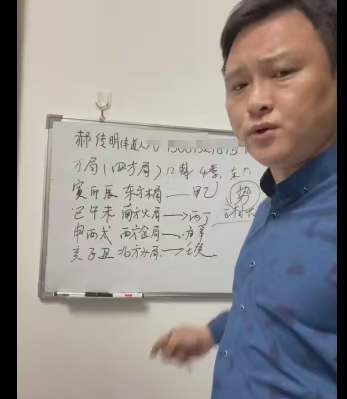 郝传明
方局(四方局)12替 4季
寅卯辰 东方木局——甲乙
势
巳午未 南方火局→丙丁
申酉戌 西方金局→庚辛
亥子丑 北方水局→壬癸